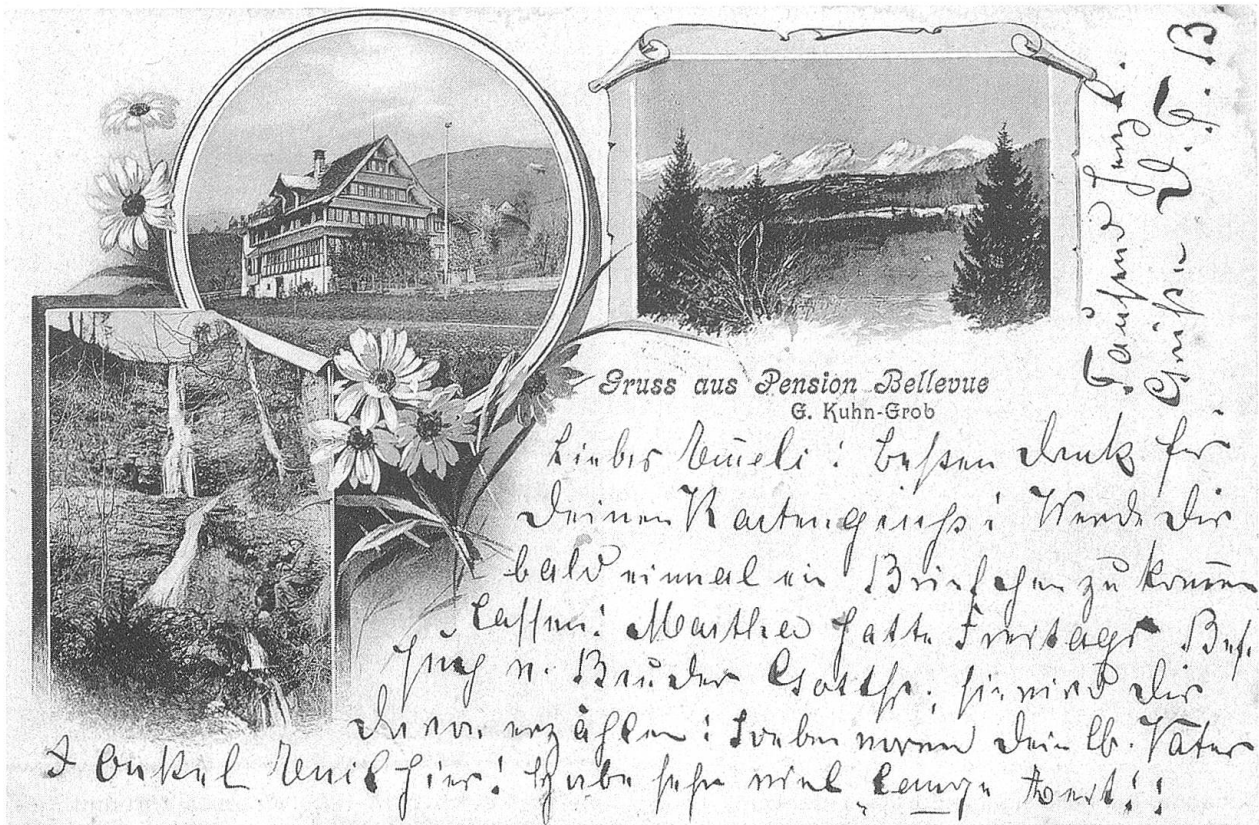 Gruss aus Pension Bellevue
G. Kuhn-Grob
Liebes Emeli! Besten Dank für
Deinen Kartengruss! Werde Dir
bald einmal ein Briefchen zukommen
lassen! Martha hatte Freitags Be-
such v. Bruder Gotth. sie wird Dir
davon erzählen! Soeben waren Dein lb. Vater
& Onkel Emil hier! Habe sehr viel "lange Zeit"!!
Tausend herzl.
Grüsse